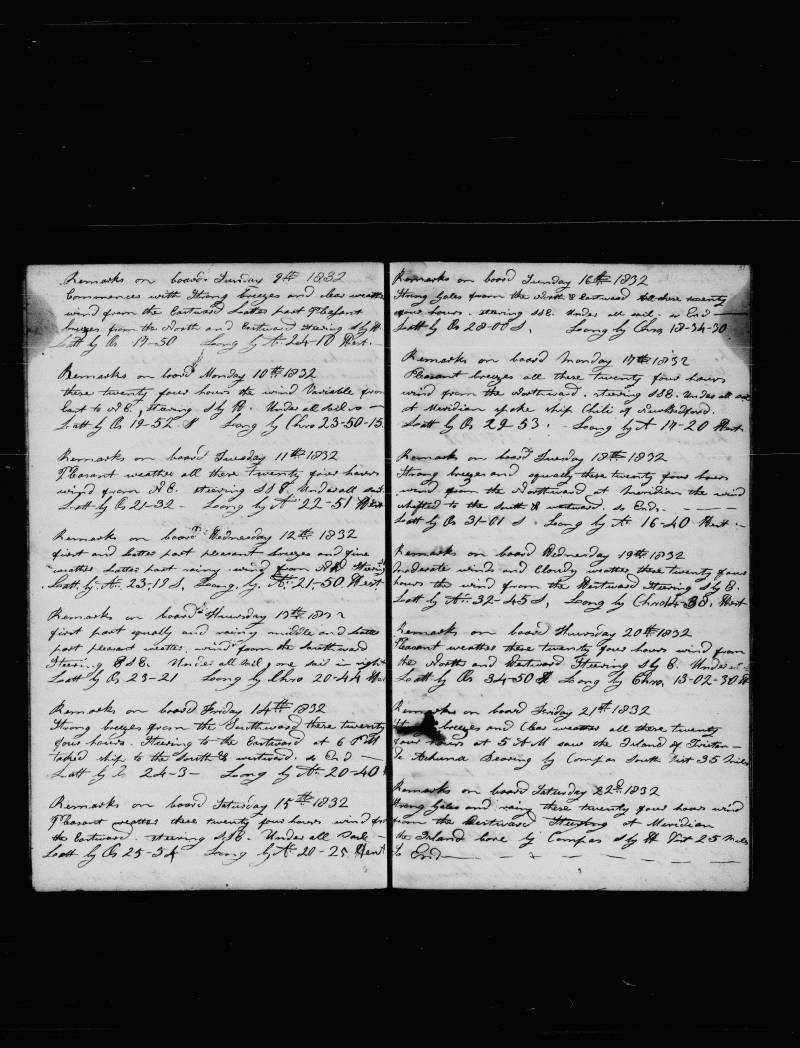 Remarks on board Sunday 9th 1832
Commences with Strong breezes and clear weather
wind from the Eastward Latter part Pleasant
breezes from the North and Eastward Steering S by W
Latt by Os 17-50 Loong by A 24-10 West.
Remarks on board Monday 10th 1832
these twenty four hours the wind Variable from
East to NE, Steering S by W. Under all sail so
Latt by Os 19-52 Loong by Chro 23-50-15
Remarks on board Tuesday 11th 1832
Pleasant weather all these twenty four hours
wind from NE. steering SSE. Under all sail
Latt by Os 21-32 - Loong by A 22-51 West
Remarks on board Wednesday 12th 1832
first and Latter part pleasant breezes and fine
weather Latter part rainy wind from Steering
Latt. by A. 23-19 S, Loong. by. A. 21-50 West
Remarks on board Thursday 13th
first part squally and rainy middle and Latter
part pleasant weather. wind from the Southward
Steering ESE. Under all sail, one sail in sight
Latt by Os 23-21 Loong by Chro 20-44 West
Remarks on board Friday 14th 1832
Strong breezes from the Southward these twenty
four hours. Steering to the Eastward at 6 PM
tacked ship to the South & westward. so End
Latt by 24-3- Loong by A. 20-40
Remarks on board Saturday 15th 1832
Pleasant weather these twenty four hours wind from
the Eastward. steering SSE. Under all Sail
Latt by Os 25-54 Loong by A. 20-25 West
Remarks on board Sunday 16th 1832
Strong Gales from the North & Eastward all these twenty
four hours. stearing SSE. Under all sail. so End
Latt by Os 28-00 S, Loong by Chro, 18-34-30
Remarks on board Monday 17th 1832
Pleasant breezes all these twenty four hours
wind from the Northward. steering SSE. Under all sail
at Meridian spoke ship Chili of NewBedford.
Latt by Os 29-53. - Loong by A 17-20 West
Remarks on board Tuesday 18th 1832
Strong breezes and squally these twenty four hours
wind from the Northward at Meridian the wind
shifted to the South & westward. so Ends.
Latt by Os 31-01 S. Loong by A. 16-40 West.
Remarks on board Wednesday 19th 1832
Moderate winds and Cloudy weather these twenty four
hours the wind from the Westward Steering S by E.
Latt by A. 32-45 S, Loong by Chro West
Remarks on board Thursday 20th 1832
Pleasant weather these twenty four hours wind from
the North and Westward Steering S by E. Under all
Latt by Os 34-50 Loong by Chro, 13-02-30 W
Remarks on board Friday 21st 1832
breezes and Clear weather all these twenty
four hours at 5 AM saw the Island of Tristan
De Bearing by Compas South Dist 35 Miles
Remarks on board Saturday 22d 1832
Strong Gales and rainy these twenty four hours wind
from the Westward Steering at Meridian
the Island bore by Compas S by W Dist 25 Miles
So End